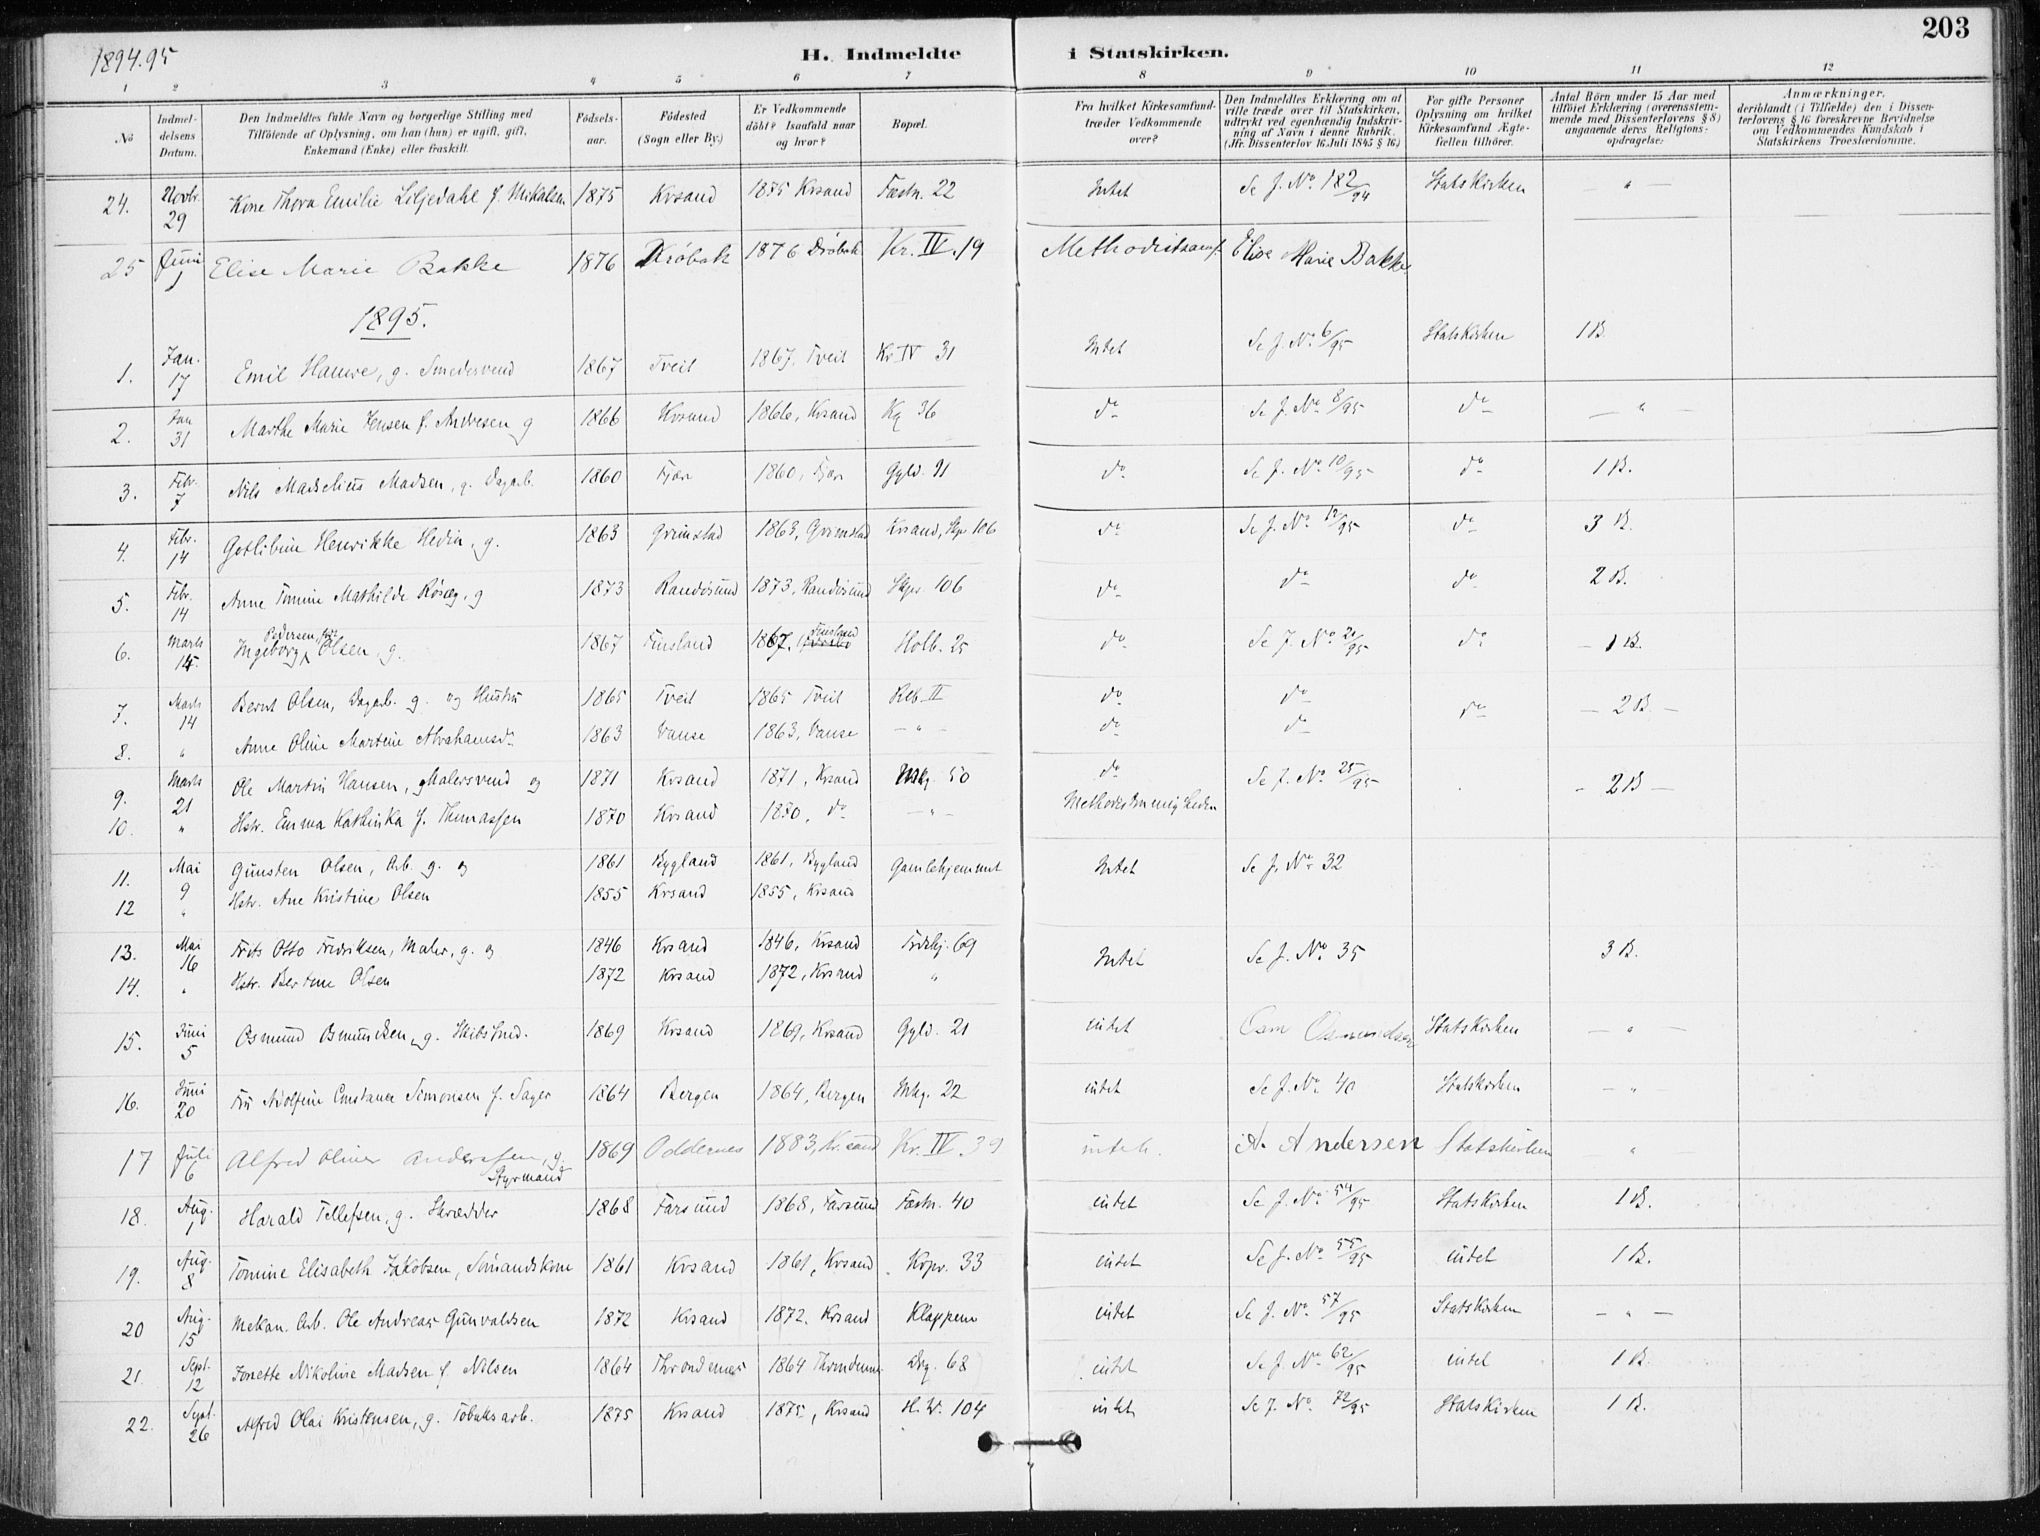 203
1894.95
H. Indmeldte i Statskirken.
1 2 3 4 5 6 7 8 9 10 11 12
No
Indmel-
delsens
Datum.
Den Indmeldtes fulde Navn og borgerlige Stilling med
Tilføiende af Oplysning, om han (hun) er ugift, gift,
Enkemand (Enke) eller fraskilt.
Fødsels-
aar.
Fødested
(Sogn eller By.)
Er Vedkommende
döbt? Isaafald naar
og hvor?
Bopæl.
Fra hvilket Kirkesamfund
træder Vedkommende
over?
Den Indmeldtes Erklæring om at
ville træde over til Statskirken,
udtrykt ved egenhændig Indskriv-
ning af Navn i denne Rubrik.
(Jfr. Dissenterlov 16 Juli 1845 § 16.)
For gifte Personer
Oplysning om hvilket
Kirkesamfund Ægte-
fællen tilhörer.
Antal Börn under 15 Aar med
tilföiet Erklæring (overensstem-
mende med Dissenterlovens § 8)
angaaende deres Religions-
opdragelse.
Anmærkninger,
deriblandt (i Tilfælde) den i Dissen-
terlovens § 16 foreskrevne Bevidnelse
om Vedkommendes Kundskab i
Statskirkens Troeslærdomme.
24. Novbr. 29 Kone Thora Emilie Liljedahl f. Mikalsen 1875 Krsand 1875 Krsand Fæstn. 22 Intet Se J. No 182/94 Statskirken — " —
25 Juni 1 Elise Marie Bakke 1876 Drøbak 1876 Drøbak Kr. IV. 19 Methodistsamf. Elise Marie Bakke
1895.
1. Jan. 17 Emil Hauwe, g. Smedesvend 1867 Tveit 1867, Tveit Kr IV 31 Intet Se J. No 6/95 Statskirken 1 B.
2. Jan 31 Marthe Marie Jensen f. Andresen g 1866 Krsand 1866, Krsand Kg 36 do Se J. No 8/95 do — " —
3. Febr. 7 Nils Madselius Madsen, g. Dagarb. 1860 Fjære 1860, Fjære Gyld. 91 do Se J. No 10/95 do 1 B.
4. Febr. 14 Gotlibine Henrikke Hedin, g. 1863 Grimstad 1863, Grimstad Krsand, Skpr 106 do Se J. No 12/95 do 3 B.
5. Febr. 14 Anne Tomine Mathilde Røsæg, g 1873 Randøsund 1873, Randøsund Skpr. 106 do do do 2 B.
6. Marts 14. Ingeborg Pedersen, f. Olsen, g. 1867 Finsland 1867, Finsland Holb. 25 do Se J. No 21/95 do — 1 B.
7. Marts 14 Bernt Olsen, Dagarb. g. og Hustru 1865 Tveit 1865 Tveit Reb. II do do do — 2 B. —
8. " Anne Oline Martine Abrahamsdr 1863 Vanse 1863, Vanse — " — do do
9. Marts 21 Ole Martin Hansen, Malersvend og 1871 Krsand 1871, Krsand Mkg. 50 do Se J. No 25/95 - 2 B —
10. " Hstr. Emma Kathinka f. Thomassen 1870 Krsand 1870, do — " — Methodistmenigheden
11. Mai 9 Gunsten Olsen, Arb. g. og 1861 Bygland 1861, Bygland Gamlehjemmet Intet Se J. No 32
12 " Hstr. Ane Kristine Olsen 1855 Krsand 1855, Krsand
13. Mai 16 Frits Otto Fredriksen, Maler, g. og 1846 Krsand 1846, Krsand 69 Intet Se J. No 35 3 B.
14. " Hstr. Bertine Olsen 1872 Krsand 1872, Krsand "
15. Juni 5 Osmund Osmundsen, g. Skibsfmd. 1869 Krsand 1869, Krsand Gyld. 21 intet Osm Osmundsen Statskirken — " —
16. Juni 20 Fru Adolfine Constance Simonsen f. Sager 1864 Bergen 1864, Bergen Mkg. 22 intet Se J. No 40 Statskirken — "
17 Juli 6 Alfred Oliver Anderssen, g. Styrmand 1869 Oddernes 1883, Kr.sand Kr. IV. 39 intet. A. Andersen Statskirken "
18. Aug. 1 Harald Tellefsen, g. Skrædder 1868 Farsund 1868, Farsund Fæstn. 40 intet Se J. No 54/95 Statskirken 1 B.
19. Aug. 8 Tomine Elisabeth Jakobsen, Sømandskone 1861 Krsand 1861, Krsand Krpr. 33 intet Se J. No 55/95 intet 1 B.
20 Aug. 15 Mekan. Arb. Ole Andreas Gunvaldsen 1872 Krsand 1872, Krsand Klappene intet Se J. No 57/95 Statskirken — " —
21. Sept. 12 Jonette Nikoline Madsen f. Nilsen 1864 Throndenæs 1864 Throndenæs Drg. 68 intet Se J. No 62/95 intet 1 B.
22. Sept. 26 Alfred Olai Kristensen, g. Tobaksarb. 1875 Krsand 1875, Krsand H. W. 104 intet Se J. No 72/95 Statskirken 1 B.